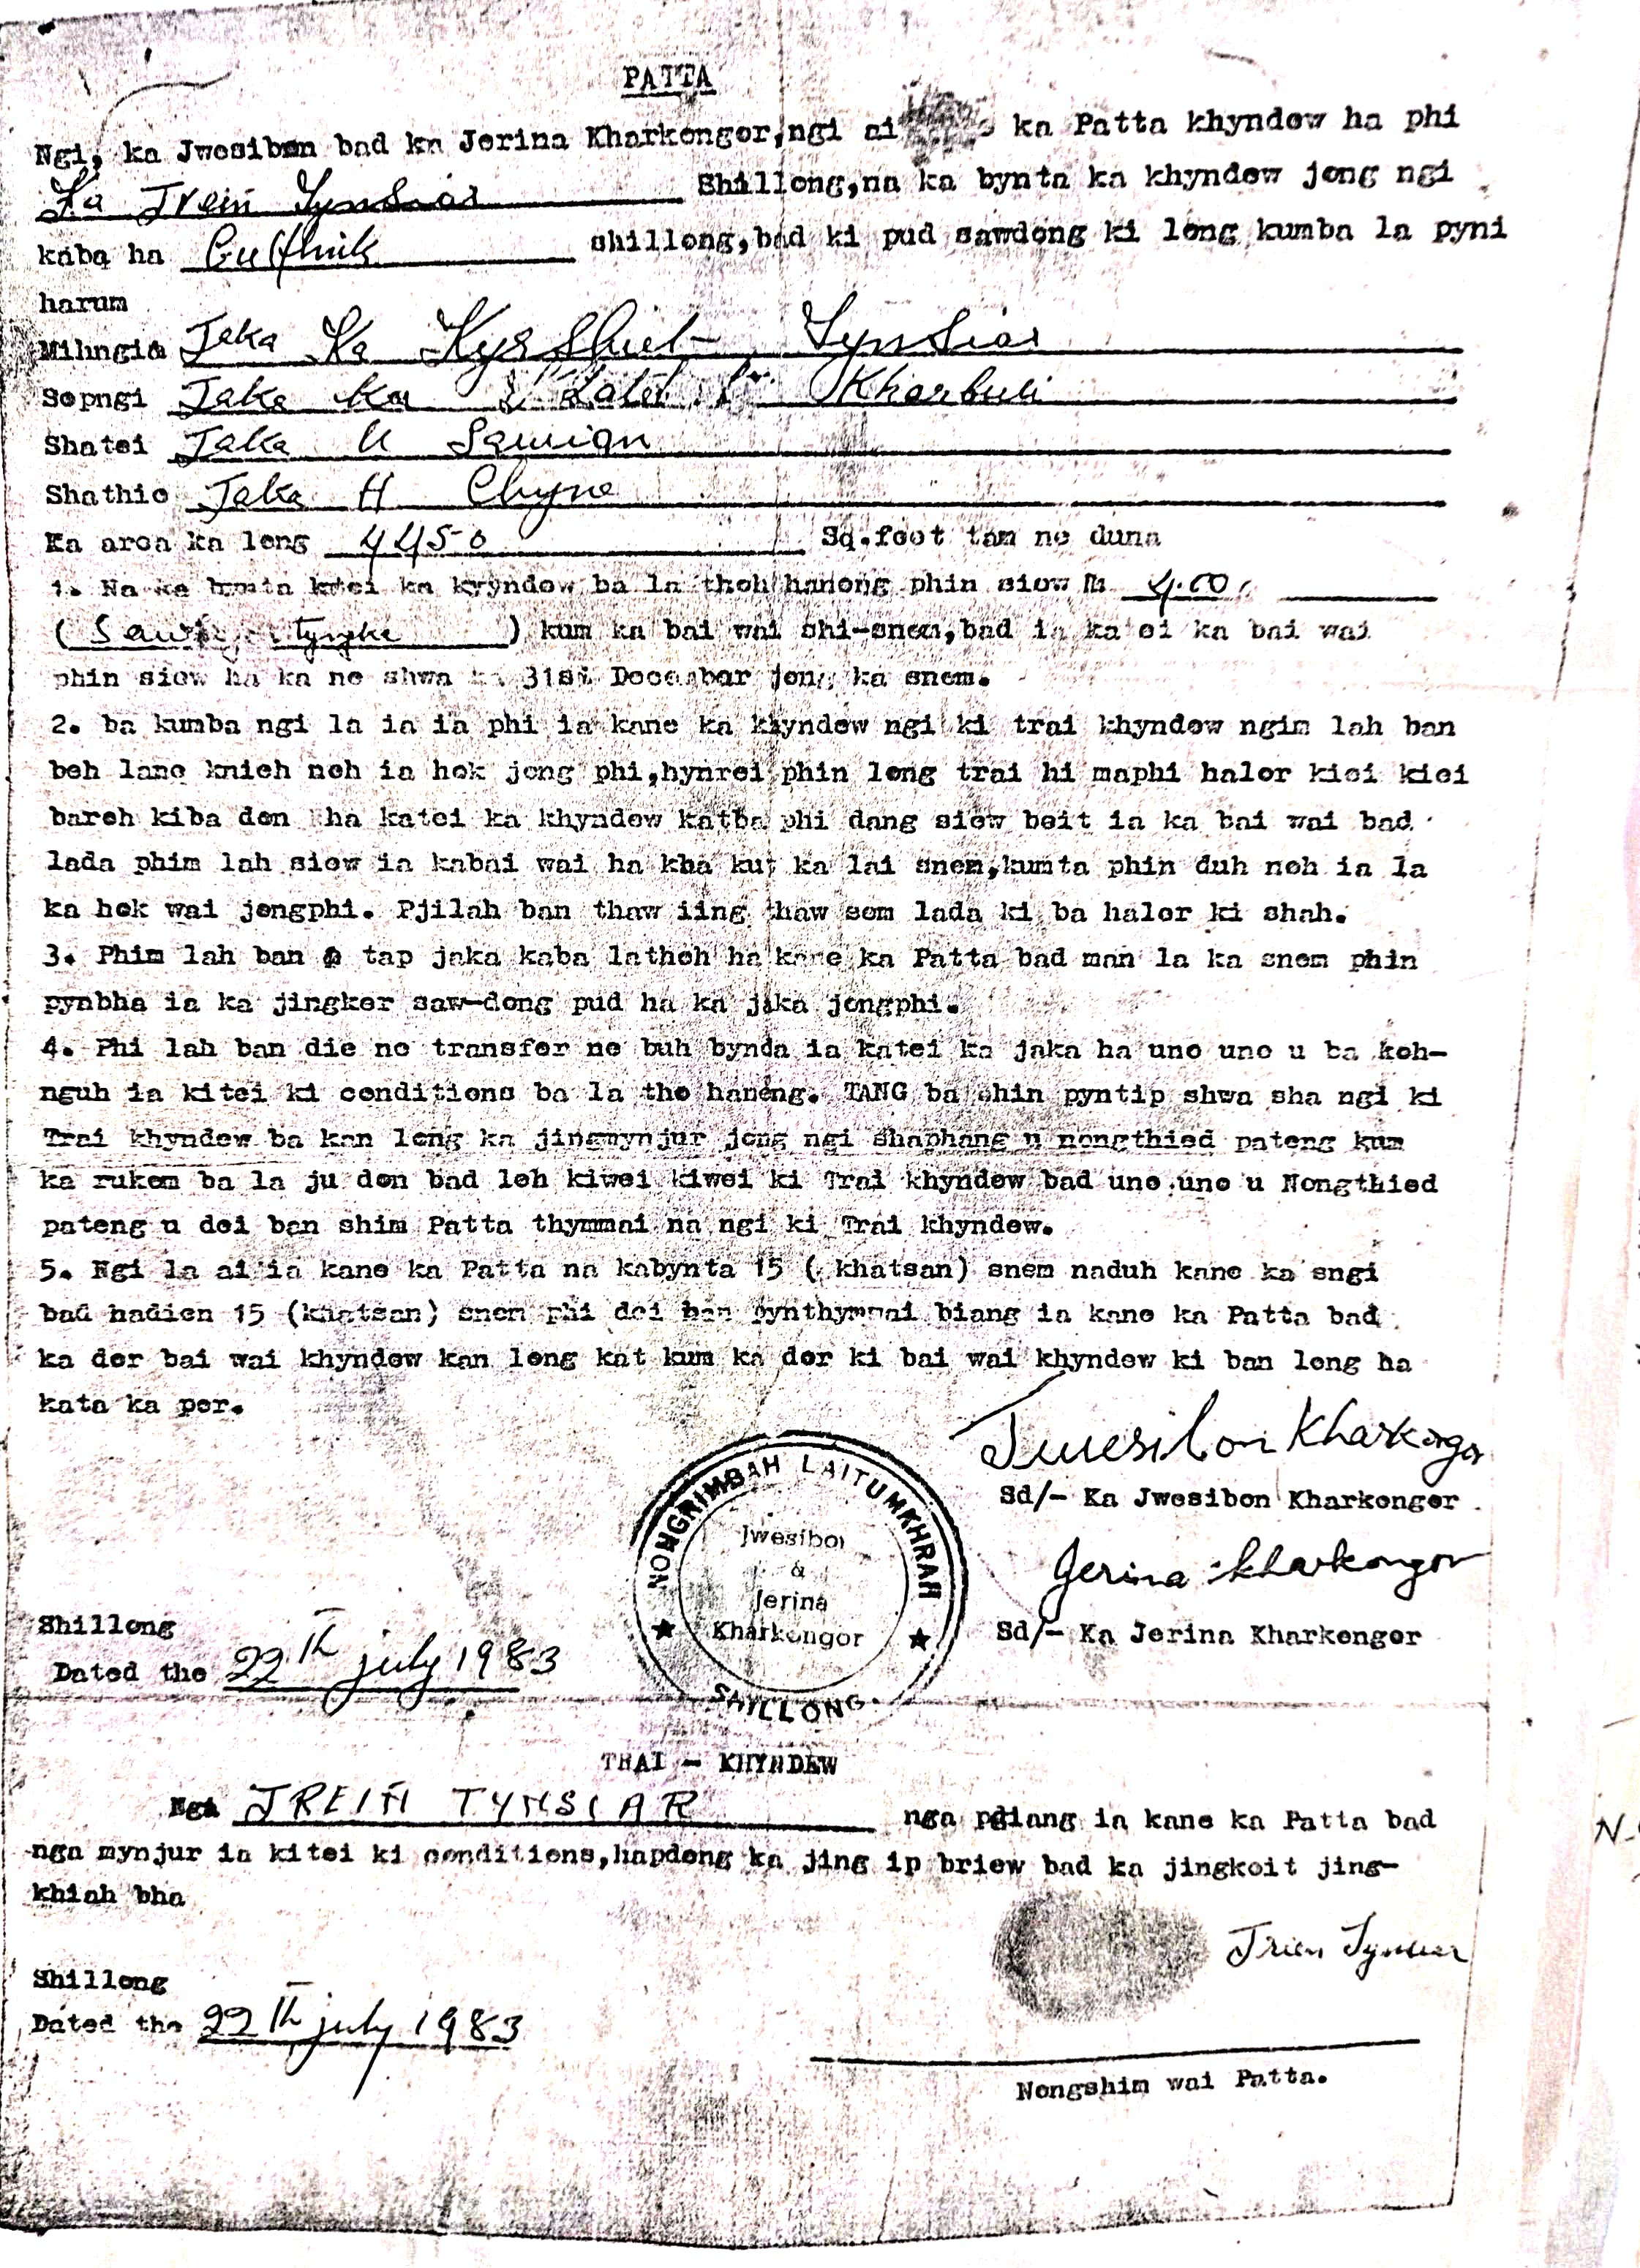 PATTA
Ngi, ka Jwesibon bad ka Jerina Kharkongor,ngi ai ka Patta khyndew ha phi
Ka Trein Tynsiar Shillong,na ka bynta ka khyndew jong ngi
kaba ha shillong,bad ki pud sawdong ki long kumba la pyni
harum
Mihngi Jaka Ka Tynsiar
Sepngi Jaka ka Kharbuli
Shatei Jaka U Sawian
Shathie Jaka H Chyne
Ka area ka long 4450 Sq.foot tam ne duna
1. Na ka bynta katei ka kyyndew ba la thoh haneng phin siew Rs 4.00
( Saw tyngka ) kum ka bai wai shi-snem,bad ia katei ka bai wai
phin siew ha ka ne shwa ka 31st December jong ka snem.
2. ba kumba ngi la ia ia phi ia kane ka khyndew ngi ki trai khyndew ngim lah ban
beh lane knieh noh ia hok jong phi,hynrei phin long trai hi maphi halor kiei kiei
bareh kiba don ha katei ka khyndew katba phi dang siew beit ia ka bai wai bad
lada phim lah siew ia kabai wai ha kha kut ka lai snem,kumta phin duh noh ia la
ka hok wai jongphi. Pjilah ban thaw iing thaw sem lada ki ba halor ki shah.
3. Phim lah ban tap jaka kaba lathoh ha kane ka Patta bad man la ka snem phin
pynbha ia ka jingker saw-dong pud ha ka jaka jongphi.
4. Phi lah ban die ne transfer ne buh bynda ia katei ka jaka ha uno uno u ba koh-
nguh ia kitei ki conditions ba la tho haneng. TANG ba phin pyntip shwa sha ngi ki
Trai khyndew ba kan long ka jingmynjur jong ngi shaphang u nongthied pateng kum
ka rukom ba la ju don bad leh kiwei kiwei ki Trai khyndew bad uno uno u Nongthied
pateng u dei ban shim Patta thymmai na ngi ki Trai khyndew.
5. Ngi la ai ia kane ka Patta na kabynta 15 ( khatsan) snem naduh kane ka sngi
bad hadien 15 (khatsan) snem phi dei ban pynthymmai biang ia kane ka Patta bad
ka dor bai wai khyndew kan long kat kum ka dor ki bai wai khyndew ki ban long ha
kata ka por.
Jwesibon Kharkongor
Sd/- Ka Jwesibon Kharkongor
NONGRIMBAH LAITUMKHRAH
Jwesibon
&
Jerina
Kharkongor
SHILLONG
Jerina Kharkongor
Sd/- Ka Jerina Kharkongor
Shillong
Dated the 22th july 1983
TRAI - KHYNDEW
Nga TREIN TYNSIAR nga pdiang ia kane ka Patta bad
nga mynjur ia kitei ki conditions,hapdeng ka jing ip briew bad ka jingkoit jing-
khiah bha
Trien Tynsiar
Shillong
Dated the 22th july 1983
Nongshim wai Patta.